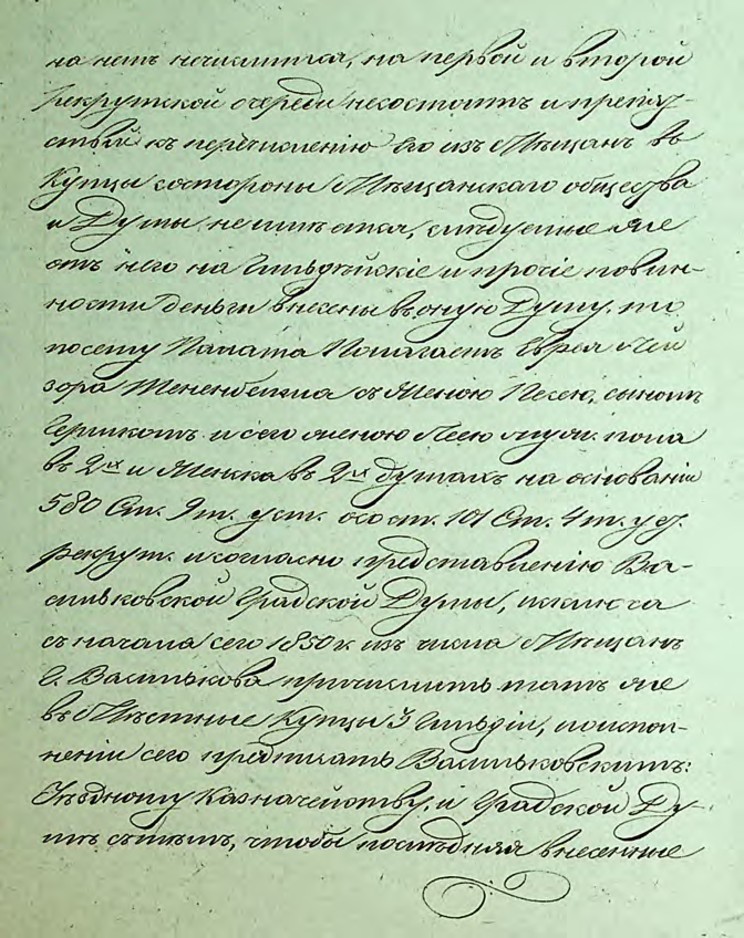 на немъ нечислится, на первой и второй
рекрутской очереди несостоитъ и препят-
ствій къ перечисленію его изъ Мѣщанъ въ
Купцы состороны Мѣщанскаго общества
и Думы неимѣется, слѣдуемые же
отъ него на Гильдѣйскіе и прочіе повин-
ности деньги внесены въ оную Думу, то
посему Палата Полагаетъ Еврея Лей
зора Тененбейма съ Женою Песею, сыномъ
Гершкомъ и сего женою Леею муж. пола
въ 2хъ и Женска въ 2хъ душахъ на основаніи
580 Ст. 9 т. уст. о сост. 101 Ст. 4 т. уст.
рекрут. и согласно представленію Ва-
сильковской Градской Думы, исключа
съ начала сего 1850 г. изъ числа Мѣщанъ
г. Василькова причислить тамъ же
въ Мѣстные Купцы 3 Гильдіи, по испол-
неніи сего предписать Васильковскимъ:
Уѣздному Казначейству, и Градской Ду-
мѣ съ тѣмъ, чтобы послѣдняя внесенные